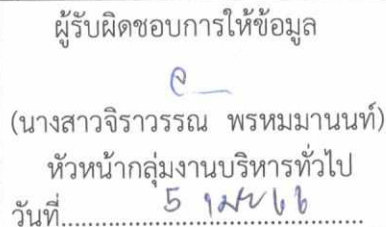 ผู้รับผิดชอบการให้ข้อมูล
(นางสาวจิราวรรณ พรหมมานนท์)
หัวหน้ากลุ่มงานบริหารทั่วไป
วันที่ 5 เมย 66